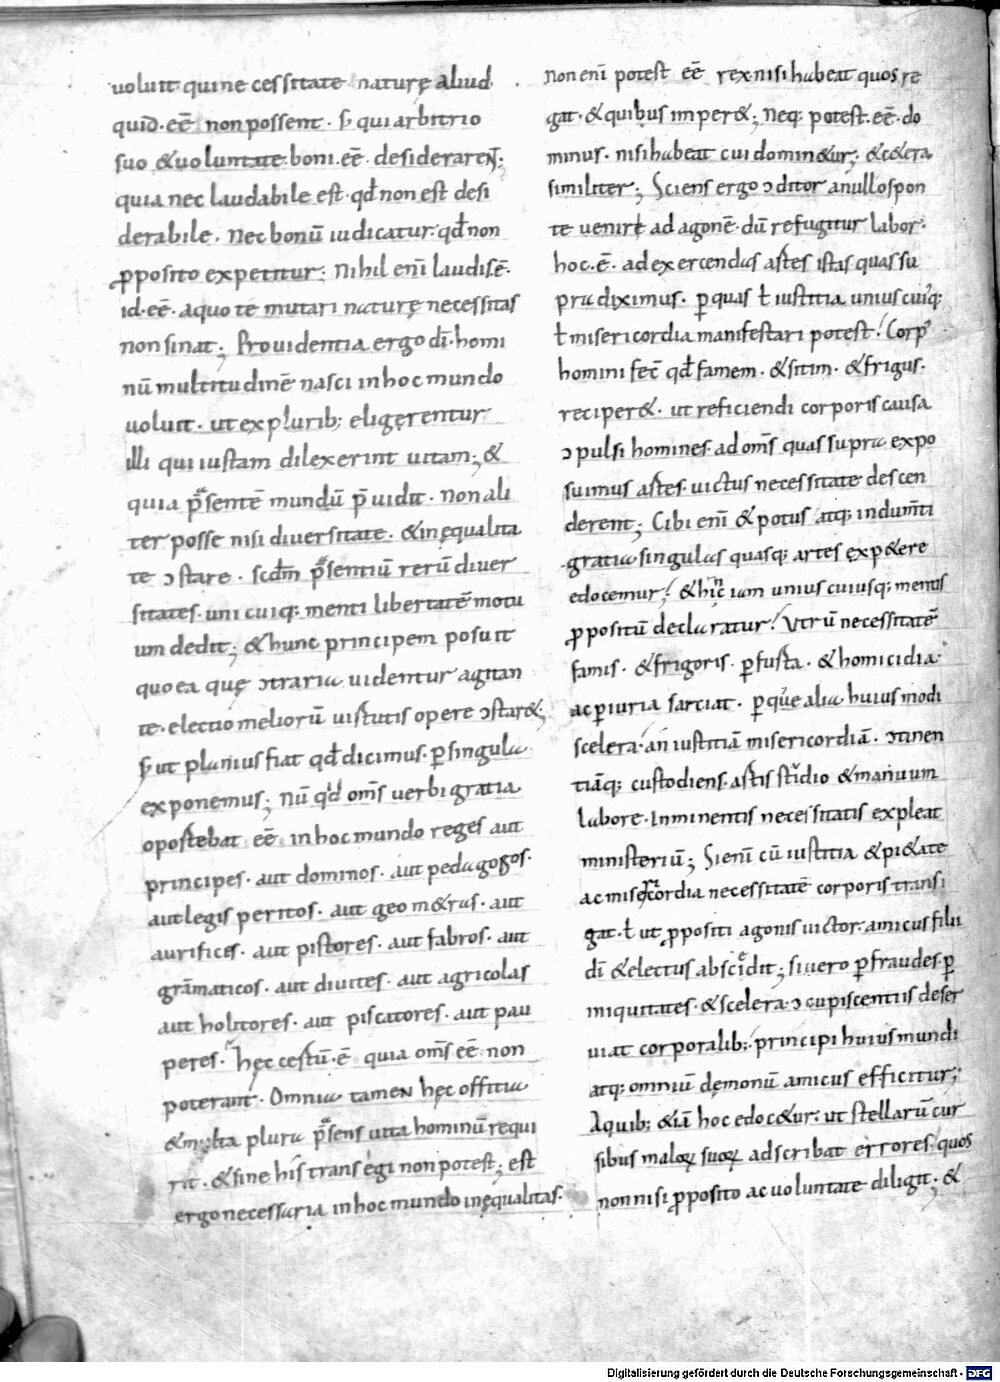 uoluit qui necessitate naturę aliud
quid· eē non possent· s; qui arbitrio
suo & uoluntate boni eē· desiderarent;
quia nec laudabile est· qđ non est desi
derabile· Nec bonū iudicatur· qđ non
ꝓposito expetitur; Nihil enī laudis ē·
id·eē· a quo te mutari naturę necessitas
non sinat; Prouidentia ergo dī· homi
nū multitudinē nasci in hoc mundo
uoluit· ut ex plurib; eligerentur
illi qui iustam dilexerint uitam; &
quia p̄sentē mundū p̄uidit· non ali
ter posse nisi diuersitate· & inęqualita
te ↄstare· scdm̄ p̄sentiū rerū diuer
sitates· uni cuiq; menti libertatē motu
um dedit; & hunc principem posuit
quo ea quę ↄtraria uidentur agitan
te· electio meliorū uirtutis opere ↄstar&;
s; ut planius fiat qđ dicimus· ꝑ singula
exponemus; Nū qđ om̄s uerbi gratia
oportebat eē in hoc mundo reges aut
principes· aut dominos· aut pedagogos·
aut legis peritos· aut geom&ras· aut
aurifices· aut pistores· aut fabros· aut
grāmaticos· aut diuites· aut agricolas
aut holitores· aut piscatores· aut pau
peres· hęc certū·ē quia om̄s eē non
poterant· Omnia tamen hęc offitia
& multa plura p̄sens uita hominū requi
rit· & sine his transegi non potest; est
ergo necessaria in hoc mundo inęqualitas·
Non enī potest eē rex nisi habeat quos re
gat· & quibus imper&; Neq; potest· eē· do
minus· nisi habeat cui domin&ur; & c&era
similiter; Sciens ergo ↄditor a nullo spon
te uenire ad agonē· dū refugitur labor·
hoc·ē· ad exercendas artes istas quas su
pra diximus· ꝑ quas ł iustitia unius cuiq;
ł misericordia manifestari potest! Corp'
homini fec̄ qđ famem· & sitim· & frigus·
reciper&· ut reficiendi corporis causa
ↄpulsi homines· ad om̄s quas supra expo
suimus artes· uictus necessitate descen
derent; Cibi enī & potus atq; indum̄ti
gratia singulas quasq; artes exp&ere
edocemur! & hinc iam unius cuiusq; mentis
ꝓpositū declaratur! Vtrū necessitatē
famis· & frigoris· ꝑ furta· & homicidia·
ac ꝑiuria sarciat· ꝑque alia huius modi
scelera· an iustitiā misericordiā· ↄtinen
tiāq; custodiens· artis studio & manuum
labore· inminentis necessitatis expleat
ministeriū; Si enī cū iustitia & pi&ate
ac misericordia necessitatē corporis transi
gat· ł ut ꝓpositi agonis uictor· amicus filii
dī & electus abscedit; si uero ꝑ fraudes· ꝑ
iniquitates· & scelera· ↄcupiscentiis deser
uiat corporalib; principi huius mundi
atq; omniū demonū amicus efficitur;
A quib; & iā hoc edoc&ur· ut stellarū cur
sibus maloꝝ suoꝝ adscribat errores· quos
non nisi ꝓposito ac uoluntate diligit; &
Digitalisierung gefördert durch die Deutsche Forschungsgemeinschaft - DFG